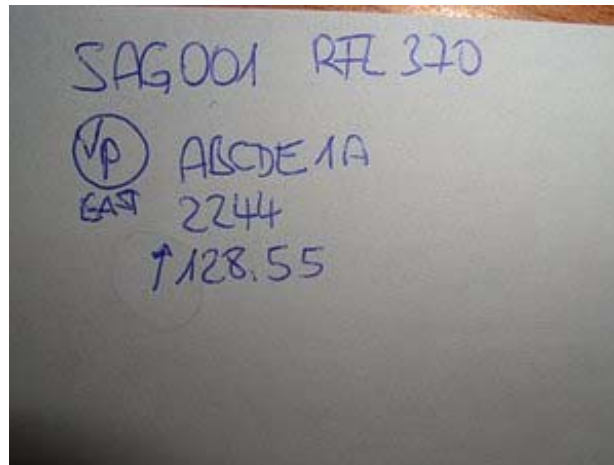 SAG001 RFL 370
VP ABCDE1A
EAST 2244
↑128.55